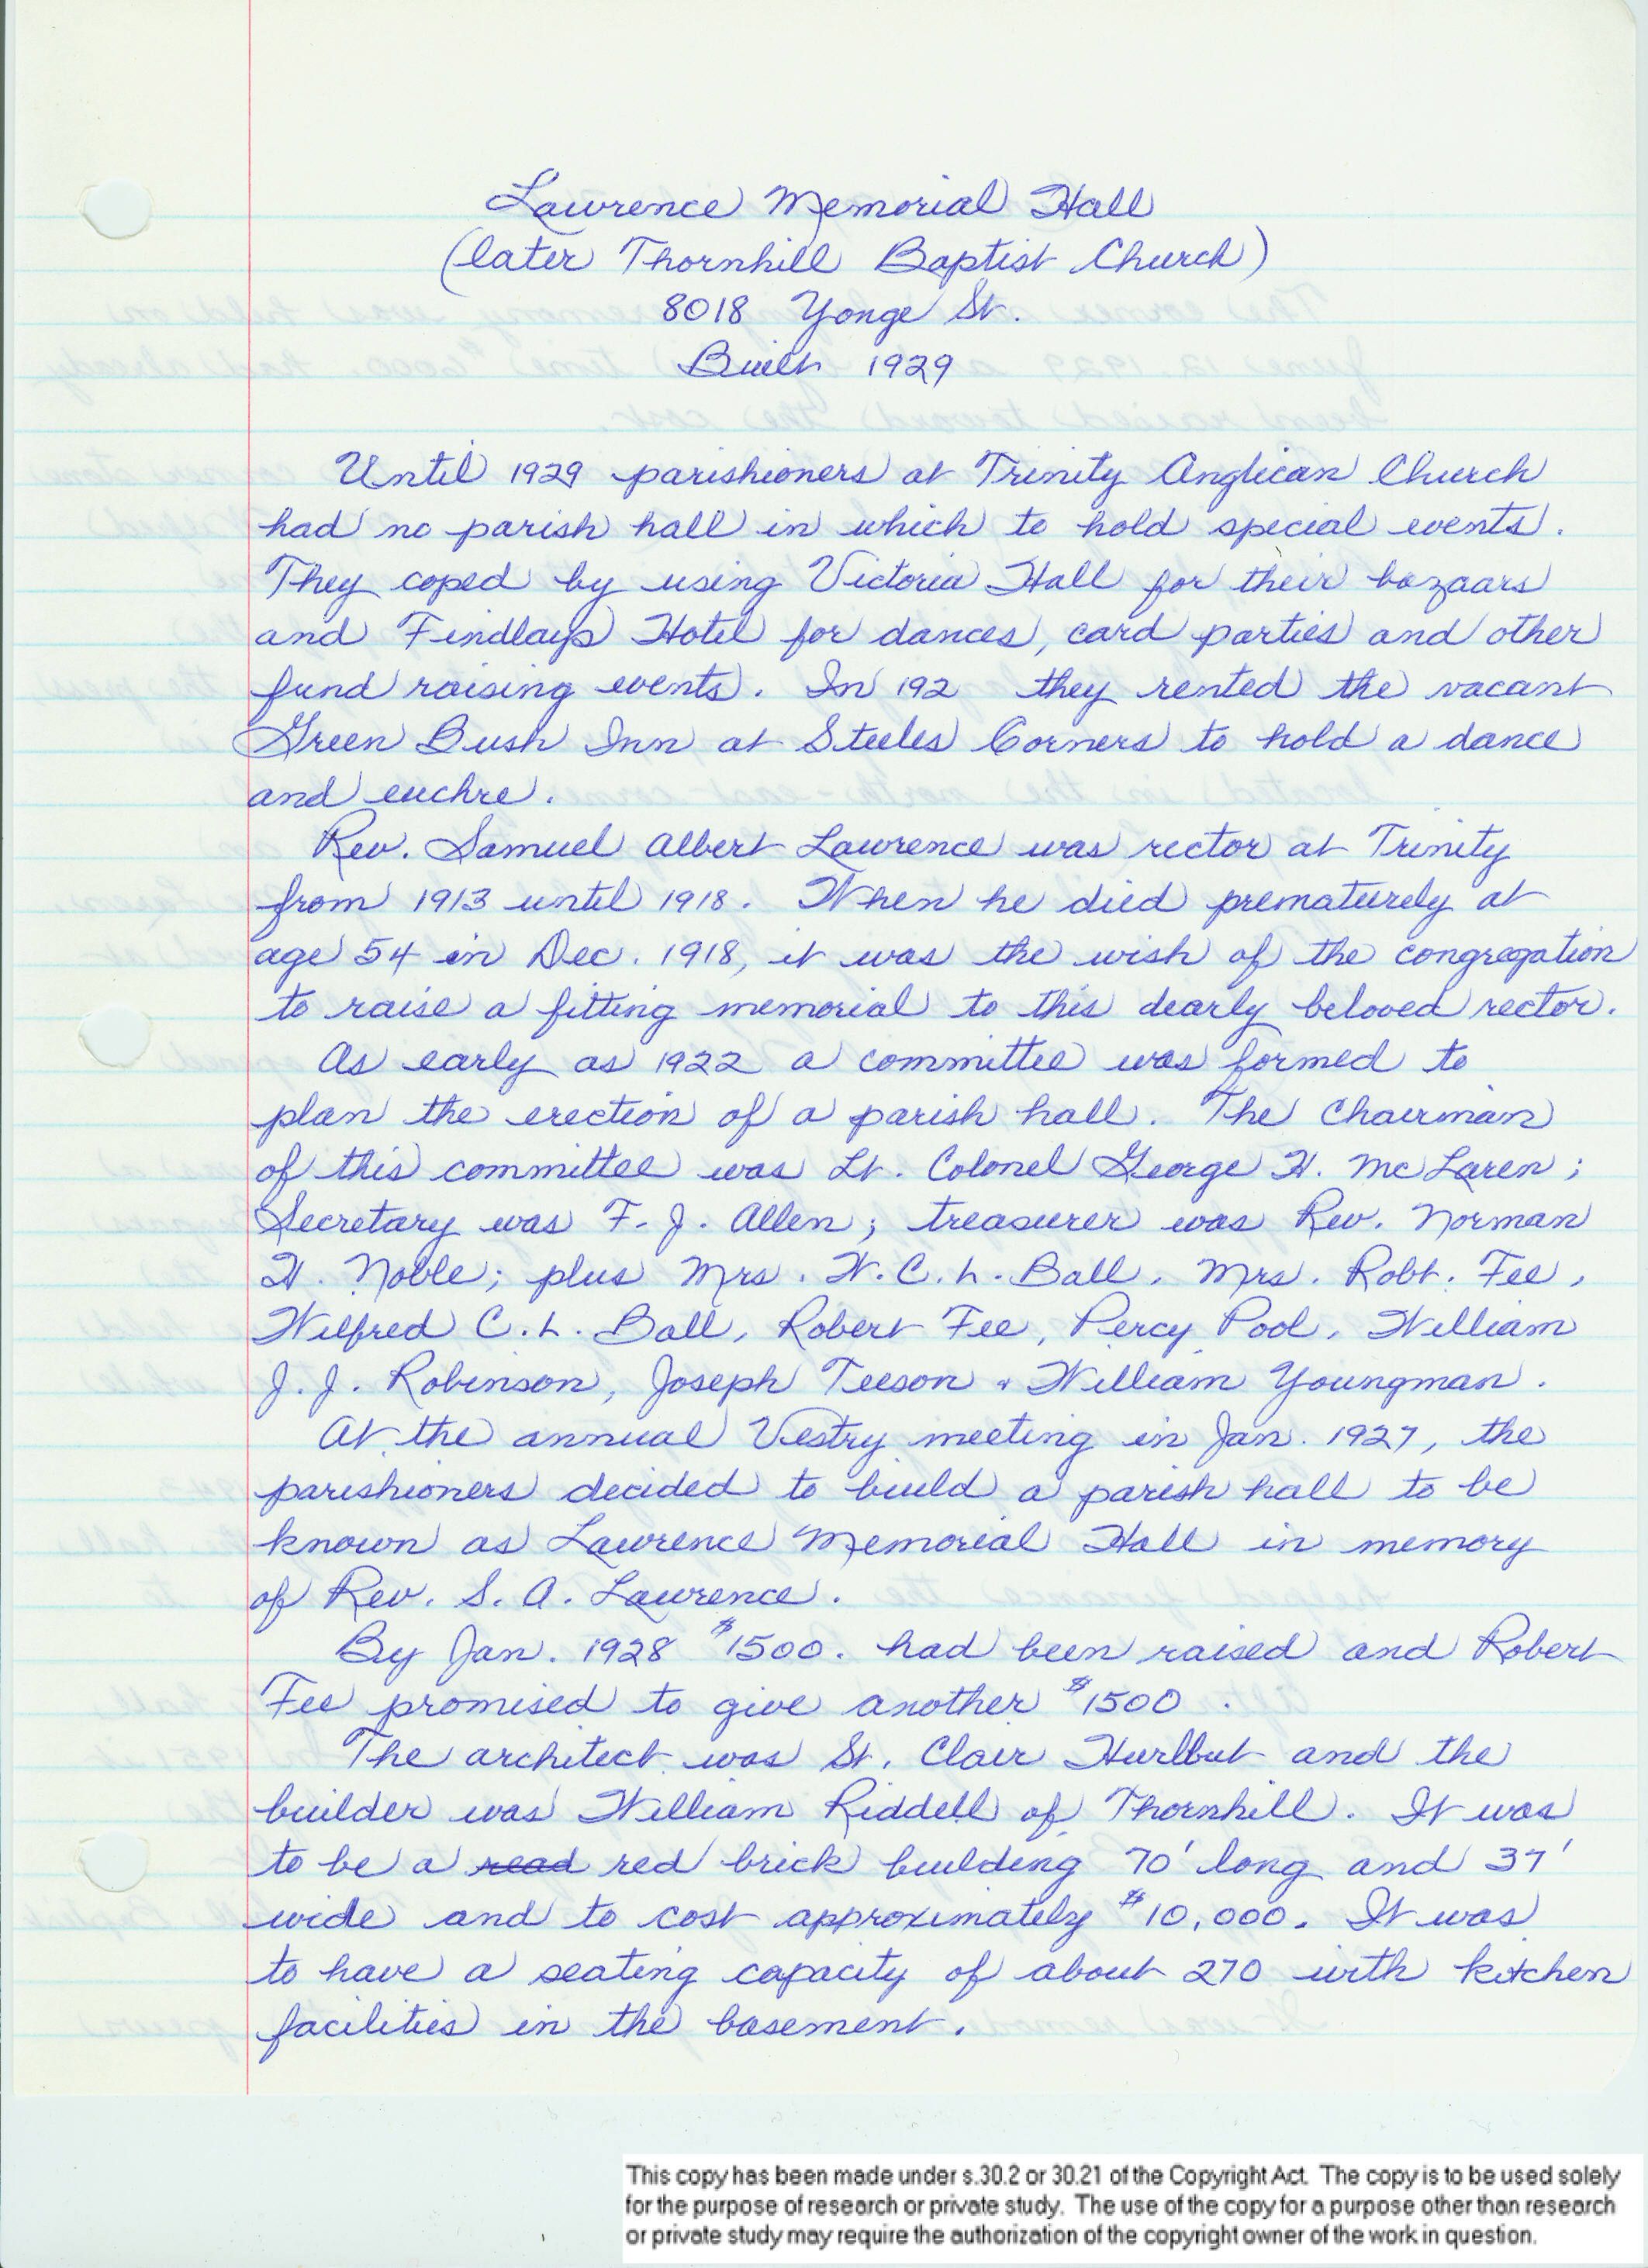 Lawrence Memorial Hall
(later Thornhill Baptist Church)
8018 Yonge St.
Built 1929
Until 1929 parishioners at Trinity Anglican Church
had no parish hall in which to hold special events.
They coped by using Victoria Hall for their bazaars
and Findlays Hotel for dances, card parties and other
fund raising events. In 192  they rented the vacant
Green Bush Inn at Steeles Corners to hold a dance
and euchre.
Rev. Samuel Albert Lawrence was rector at Trinity
from 1913 until 1918. When he died prematurely at
age 54 in Dec. 1918, it was the wish of the congregation
to raise a fitting memorial to this dearly beloved rector.
As early as 1922 a committee was formed to
plan the erection of a parish hall. The Chairman
of this committee was Lt. Colonel George H. McLaren;
Secretary was F. J. Allen; treasurer was Rev. Norman
H. Noble; plus Mrs. W.C.L. Ball, Mrs. Robt. Fee,
Wilfred C.L. Ball, Robert Fee, Percy Pool, William
J.J. Robinson, Joseph Teeson & William Youngman.
At the annual Vestry meeting in Jan. 1927, the
parishioners decided to build a parish hall to be
known as Lawrence Memorial Hall in memory
of Rev. S. A. Lawrence.
By Jan. 1928 $1500. had been raised and Robert
Fee promised to give another $1500.
The architect was St. Clair Hurlbut and the
builder was William Riddell of Thornhill. It was
to be a read red brick building 70' long and 37'
wide and to cost approximately $10,000. It was
to have a seating capacity of about 270 with kitchen
facilities in the basement.
This copy has been made under s.30.2 or 30.21 of the Copyright Act. The copy is to be used solely
for the purpose of research or private study. The use of the copy for a purpose other than research
or private study may require the authorization of the copyright owner of the work in question.